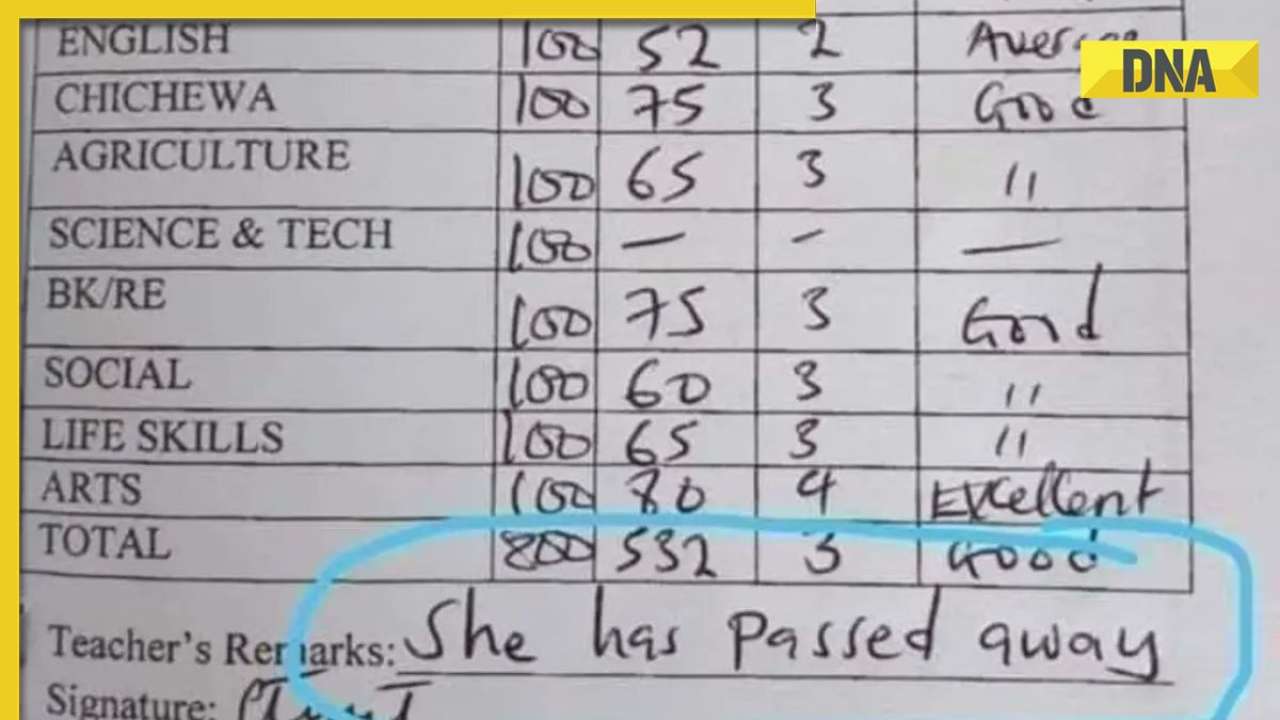 ENGLISH 100 52 2
DNA
CHICHEWA 100 75 3 Good
AGRICULTURE 100 65 3 "
SCIENCE & TECH 100 — - —
BK/RE 100 75 3 Good
SOCIAL 100 60 3 "
LIFE SKILLS 100 65 3 "
ARTS 100 80 4 Excellent
TOTAL 800 532 3 Good
Teacher's Remarks: She has passed away
Signature: